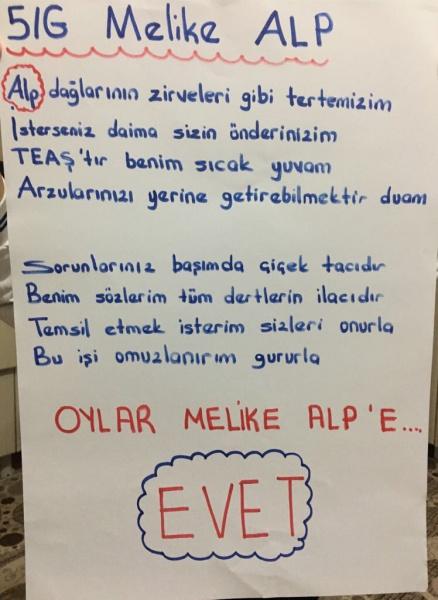 5/G Melike ALP
Alp dağlarının zirveleri gibi tertemizim
İsterseniz daima sizin önderinizim
TEAŞ'tır benim sıcak yuvam
Arzularınızı yerine getirebilmektir duam
Sorunlarınız başımda çiçek tacıdır
Benim sözlerim tüm dertlerin ilacıdır
Temsil etmek isterim sizleri onurla
Bu işi omuzlanırım gururla
OYLAR MELİKE ALP'E....
EVET